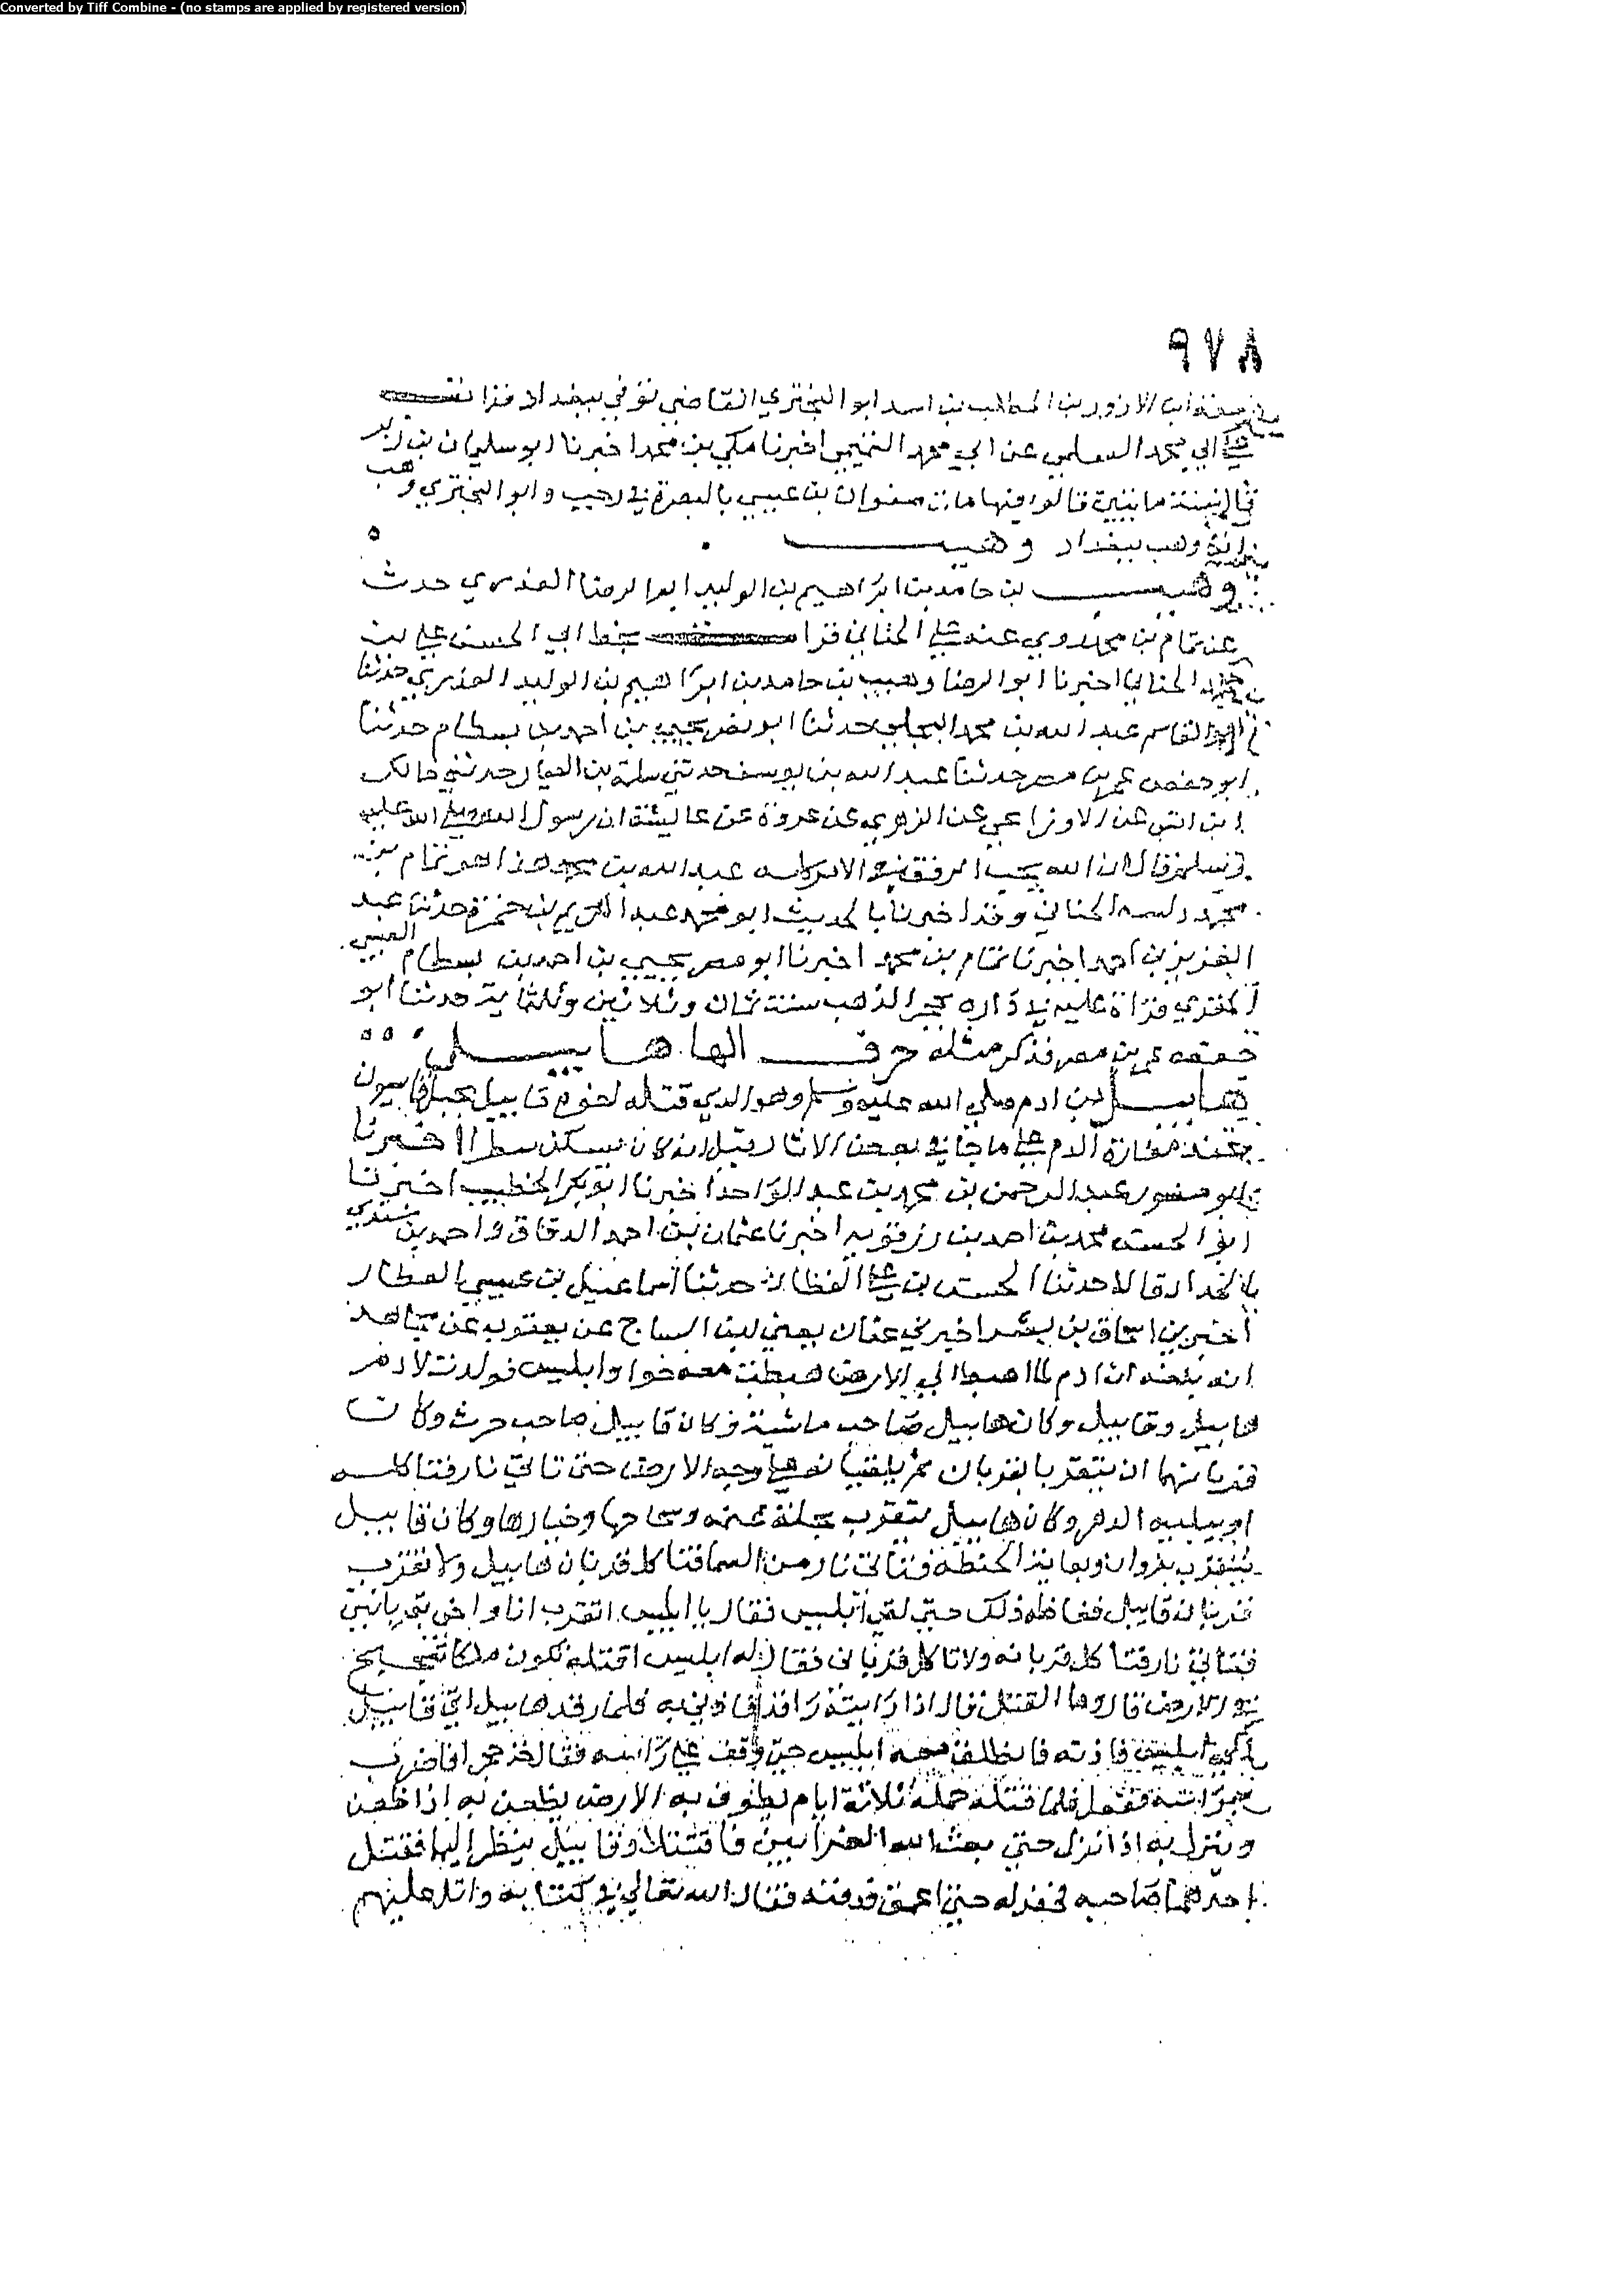 Converted by Tiff Combine - (no stamps are applied by registered version)
٩٧٨
ابن الازور بن المطلب بن اسد ابو البختري القاضي توفي ببغداد قرات
على ابي محمد السلمي عن ابي محمد التميمي اخبرنا مكي بن محمد اخبرنا ابو سليمان بن زبر
قال سنة مايتين قالوا فيها مات صفوان بن عيسى بالبصرة في رجب وابو البختري وهب
بن وهب ببغداد وهيب
وهيب بن حامد بن ابراهيم بن الوليد ابو الرضا العذري حدث
عن تمام بن محمد روى عنه علي الحنائي قرات بخط ابي الحسن علي بن
محمد الحنائي اخبرنا ابو الرضا وهيب بن حامد بن ابراهيم بن الوليد العذري حدثنا
ابو القاسم عبد الله بن محمد البجلي حدثنا ابو نصر بن احمد بن بسطام حدثنا
ابو حفص عمر بن مضر حدثنا عبد الله بن يوسف حدثني سلمة بن العيار حدثني مالك
ابن انس عن الاوزاعي عن الزهري عن عروة عن عايشة ان رسول الله صلى الله عليه
وسلم قال ان الله يحب الرفق في الامر كله عبد الله بن محمد هذا هو تمام بن
محمد دلسه الحنائي وقد اخبرنا بالحديث ابو محمد عبد الكريم بن حمزة حدثنا عبد
العزيز بن احمد اخبرنا تمام بن محمد اخبرنا ابو بن احمد بن بسطام العبسي
المقري قراة عليه في داره بحجر الذهب سنة ثمان وثلاثين وثلثماية حدثنا ابو
حفص عمر بن مضر فذكر مثله حرف الها هابيل
هابيل بن ادم صلى الله عليه وسلم وهو الذي قتله اخوه قابيل بجبل قاسيون
عند مغارة الدم على ما جا في بعض الاثار وقيل انه كان يسكن سطرا اخبرنا
ابو منصور عبد الرحمن بن محمد بن عبد الواحد اخبرنا ابو بكر الخطيب اخبرنا
ابو الحسن محمد بن احمد بن رزقويه اخبرنا عثمان بن احمد الدقاق واحمد بن سندي
الحداد قالا حدثنا الحسن بن علي القطان حدثنا اسماعيل بن عيسى العطار
اخبرنا اسحاق بن بشر اخبرني عثمان يعني ابن الساج عن يعقوب عن مجاهد
انه بلغه ان ادم لما اهبط الى الارض هبطت معه حوا وابليس فولدت لادم
هابيل وقابيل وكان هابيل صاحب ماشية وكان قابيل صاحب حرث وكان
قربانهما ان يتقربا بقربان ثم يلقيانه على وجه الارض حتى تاتي نار فتاكله
او يبليه الدهر وكان هابيل يتقرب بجلة غنمه وسحاحها وخيارها وكان قابيل
يتقرب بزوان الحنطة فتاتي نار من السما فتاكل قربان هابيل ولا تقرب
قربان قابيل فغاظه ذلك حتى لقي ابليس فقال يا ابليس اتقرب انا واخي بقربانين
فتاتي نار فتاكل قربانه ولا تاكل قرباني فقال له ابليس اقتله تكون ملكا
في الارض قال وما القتل قال اذا رايته راقدا فاذني به فلما رقد هابيل اتى قابيل
ابليس فاذنه فانطلق معه ابليس حتى وقف على راسه فقال خذ حجرا فاضرب
به راسه ففعل فلما قتله حمله ثلاثة ايام يطوف به الارض يظعن به اذا ظعن
وينزل به اذا نزل حتى بعث الله الغرابين فاقتتلا وقابيل ينظر اليهما فقتل
احدهما صاحبه فحفر له حتى اعمق فدفنه فقال الله تعالى في كتابه واتل عليهم